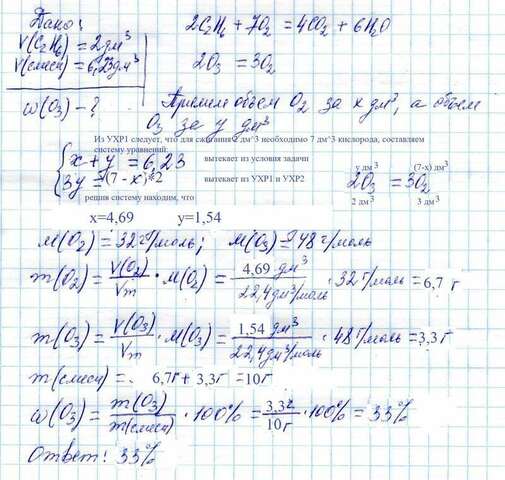 Дано:
V(C2H6) = 2дм³
V(смеси) = 6,23дм³
ω(O3) - ?
2C2H6 + 7O2 = 4CO2 + 6H2O
2O3 = 3O2
Примем объём O2 за x дм³, а объём
O3 за y дм³
Из УХР1 следует, что для сжигания 2 дм^3 необходимо 7 дм^3 кислорода, составляем
систему уравнений:
x + y = 6,23 вытекает из условия задачи
3y = (7 - x)*2 вытекает из УХР1 и УХР2
y дм^3 (7-x) дм^3
2O3 = 3O2
2 дм^3 3 дм^3
решив систему находим, что
x=4,69 y=1,54
M(O2) = 32 г/моль; M(O3) = 48 г/моль
m(O2) = V(O2)/Vm · M(O2) = 4,69 дм³/22,4 дм³/моль · 32 г/моль = 6,7 г
m(O3) = V(O3)/Vm · M(O3) = 1,54 дм³/22,4 дм³/моль · 48 г/моль = 3,3 г
m(смеси) = 6,7г + 3,3 г = 10г
ω(O3) = m(O3)/m(смеси) · 100% = 3,3г/10г · 100% = 33%
Ответ: 33%